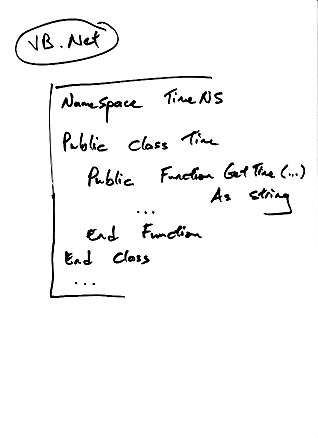 VB.Net
NameSpace TimeNS
Public class Time
Public Function GetTime (...)
As string
...
End Function
End Class
...